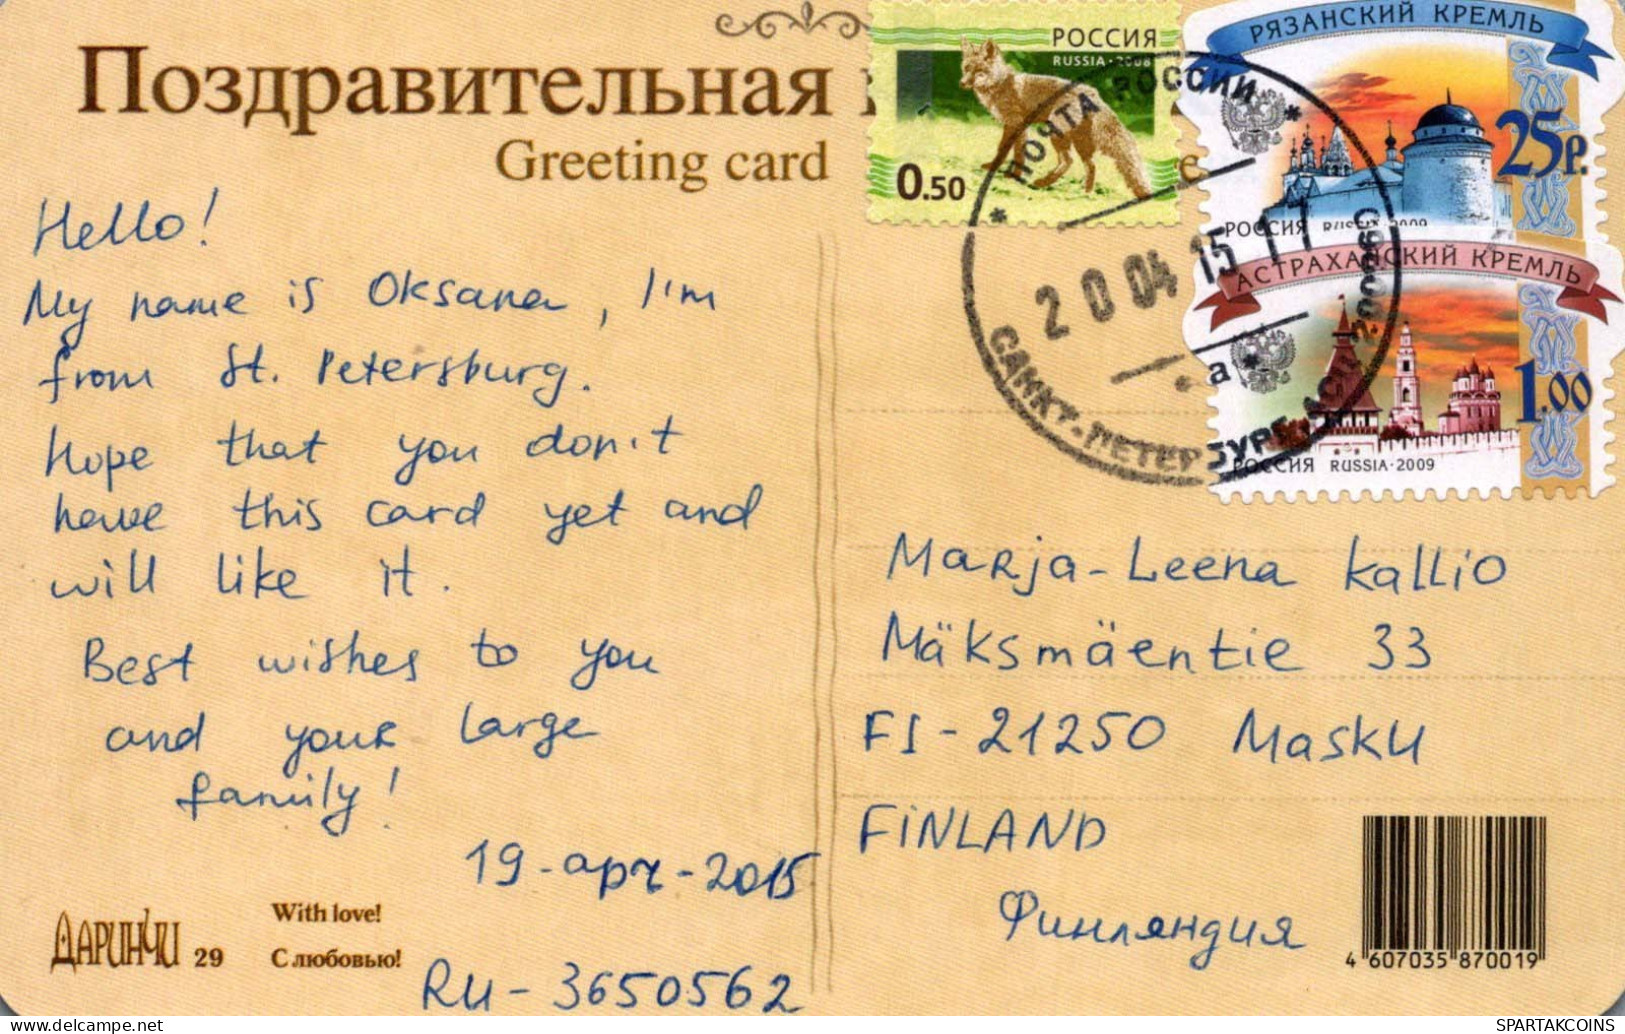 Поздравительная
Greeting card
РОССИЯ
RUSSIA·2008
0.50
РЯЗАНСКИЙ КРЕМЛЬ
25р.
РОССИЯ RUSSIA 2009
АСТРАХАНСКИЙ КРЕМЛЬ
1.00
РОССИЯ RUSSIA·2009
ПОЧТА РОССИИ
20 04 15 17
САНКТ-ПЕТЕРБУРГ
Hello!
My name is Oksana, I'm
from St. Petersburg.
Hope that you don't
have this card yet and
will like it.
Best wishes to you
and your large
family!
19-apr-2015
RU-3650562
Marja-Leena Kallio
Mäksmäentie 33
FI-21250 Masku
FINLAND
Финляндия
ДАРИНЧИ 29
With love!
С любовью!
4 607035 870019
SPARTAKCOINS
www.delcampe.net